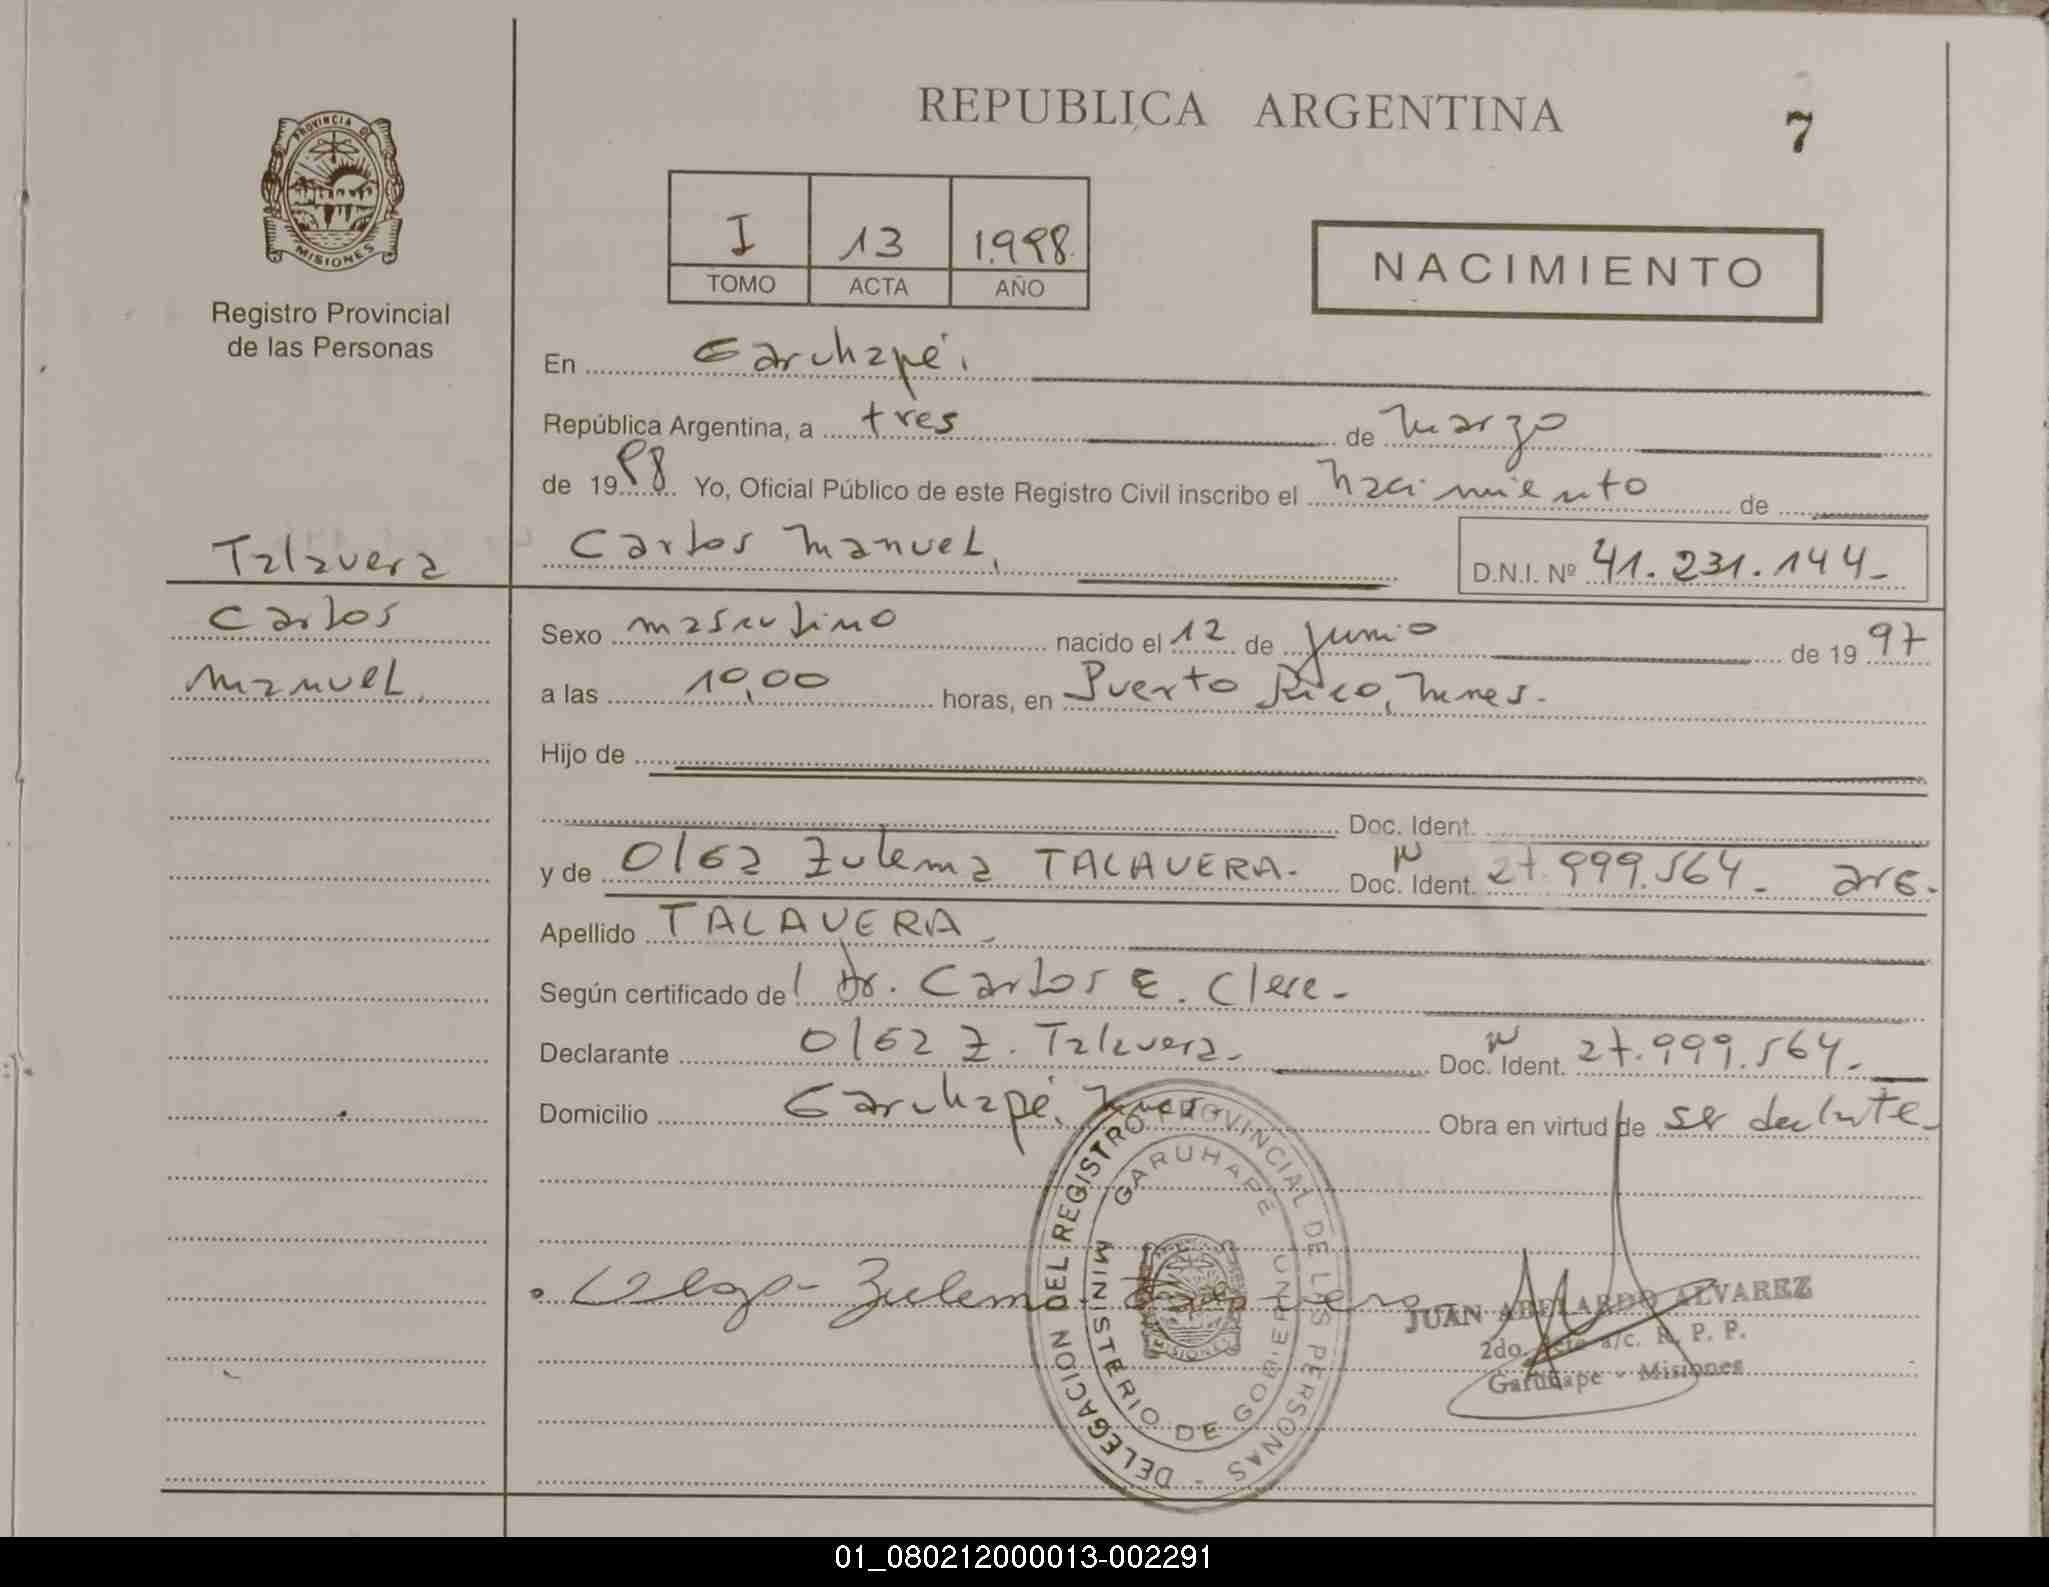 REPUBLICA ARGENTINA
7
PROVINCIA DE
MISIONES
Registro Provincial
de las Personas
I 13 1.998.
TOMO ACTA AÑO
NACIMIENTO
En Garuhapé.
República Argentina, a tres de marzo
de 1998. Yo, Oficial Público de este Registro Civil inscribo el nacimiento de
Talavera
Carlos
manuel.
Carlos manuel.
D.N.I. Nº 41.231.144-
Sexo masculino nacido el 12 de junio de 1997
a las 10,00 horas, en Puerto Rico, Mnes.
Hijo de
Doc. Ident.
y de Olga Zulema TALAVERA- Doc. Ident. 27.999.564- arg.
Apellido TALAVERA-
Según certificado del Dr. Carlos E. Clere-
Declarante Olga Z. Talavera- Doc. Ident. 27.999.564-
Domicilio Garuhapé, Mnes- Obra en virtud de ser declnte-
DELEGACION DEL REGISTRO PROVINCIAL DE LAS PERSONAS -
GARUHAPE
MINISTERIO DE GOBIERNO
MISIONES
Olga Zulema Talavera
JUAN ABELARDO ALVAREZ
2do. a/c. R. P. P.
Garuhape - Misiones
01_080212000013-002291